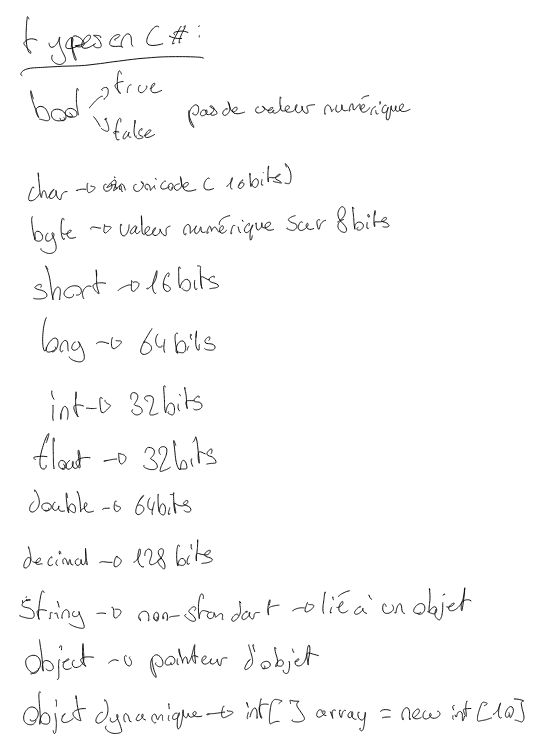 types en C# :
bool → true
↘ false pas de valeur numérique
char → unicode ( 16bits)
byte → valeur numérique sur 8bits
short → 16bits
long → 64bits
int → 32bits
float → 32bits
double → 64bits
decimal → 128 bits
String → non-standart → lié à un objet
object → pointeur d'objet
objet dynamique → int[ ] array = new int [10]